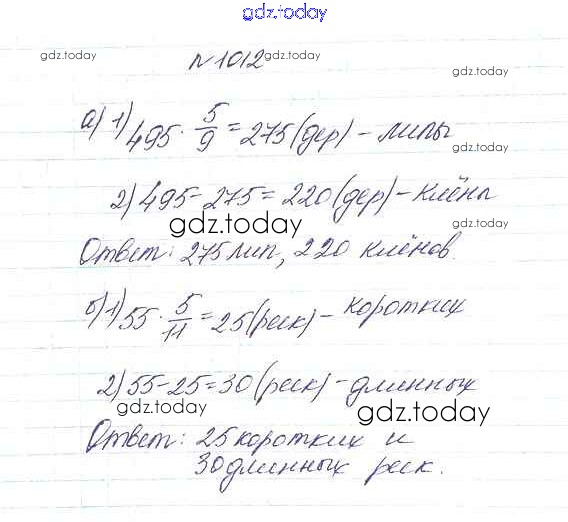 gdz.today
№1012
gdz.today gdz.today
gdz.today
а) 1) 495 · 5/9 = 275 (дер) - липы
gdz.today
2) 495 - 275 = 220 (дер) - клёны
gdz.today gdz.today
Ответ: 275 лип, 220 клёнов.
б) 1) 55 · 5/11 = 25 (реек) - коротких
2) 55 - 25 = 30 (реек) - длинных
gdz.today gdz.today
Ответ: 25 коротких и
30 длинных реек.